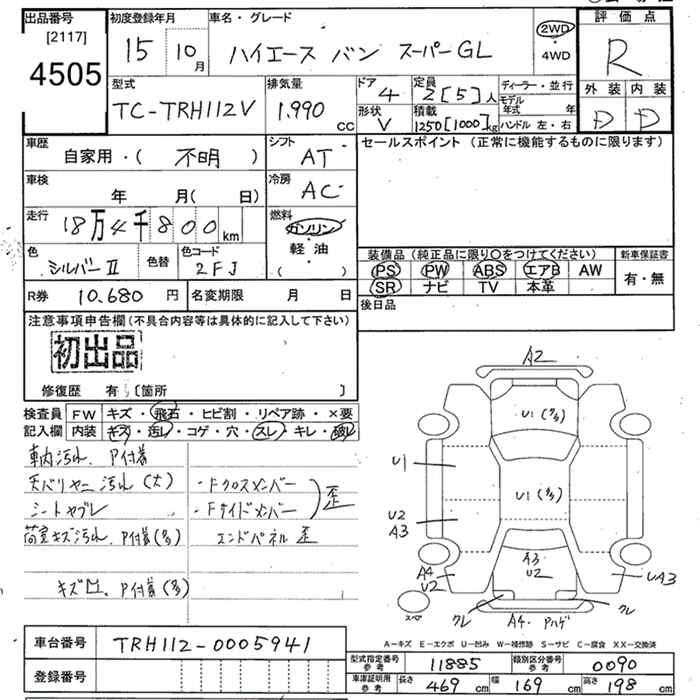 出品番号
[2117]
4505
初度登録年月
15 10月
車名・グレード
ハイエース バン スーパーGL
2WD
・
4WD
評価点
R
外装 内装
D D
型式
TC-TRH112V
排気量
1.990
CC
ドア
4
定員
2[5]人
形状
V
積載
1250[1000]kg
ディーラー・並行
モデル年式 年
ハンドル 左・右
車歴
自家用・( 不明 )
シフト
AT
セールスポイント(正常に機能するものに限ります)
車検
年 月( 日)
冷房
AC
走行
18万4千800km
燃料
ガソリン
・
軽油
( )
色
シルバーⅡ
色替
色コード
2FJ
装備品(純正品に限り○をつけてください)
新車保証書
PS PW ABS エアB AW
SR ナビ TV 本革
有・無
R券 10.680 円
名変期限 月 日
後日品
注意事項申告欄(不具合内容等は具体的に記入して下さい)
初出品
修復歴 有〔箇所 〕
検査員
記入欄
FW キズ・飛石・ヒビ割・リペア跡・×要
内装 キズ・汚レ・コゲ・穴・スレ・キレ・破レ
車内汚れ、P付着
天バリヤニ汚れ(大)
シートヤブレ
荷室キズ汚れ、P付着(多)
キズ凹、P付着(多)
・Fクロスメンバー
・Fサイドメンバー
歪
エンドパネル歪
A2
U1(多)
U1
U1(多)
U2
A3
A3
U2
A4
U2
UA3
スペア
クレ
A4・Pハゲ
クレ
車台番号 TRH112-0005941
登録番号
A-キズ E-エクボ U-凹み W-補修跡 S-サビ C-腐食 XX-交換済
型式指定番号
参考
11885
類別区分番号
参考
0090
車庫証明用
参考
長さ 469 cm 幅 169 cm 高さ 198 cm